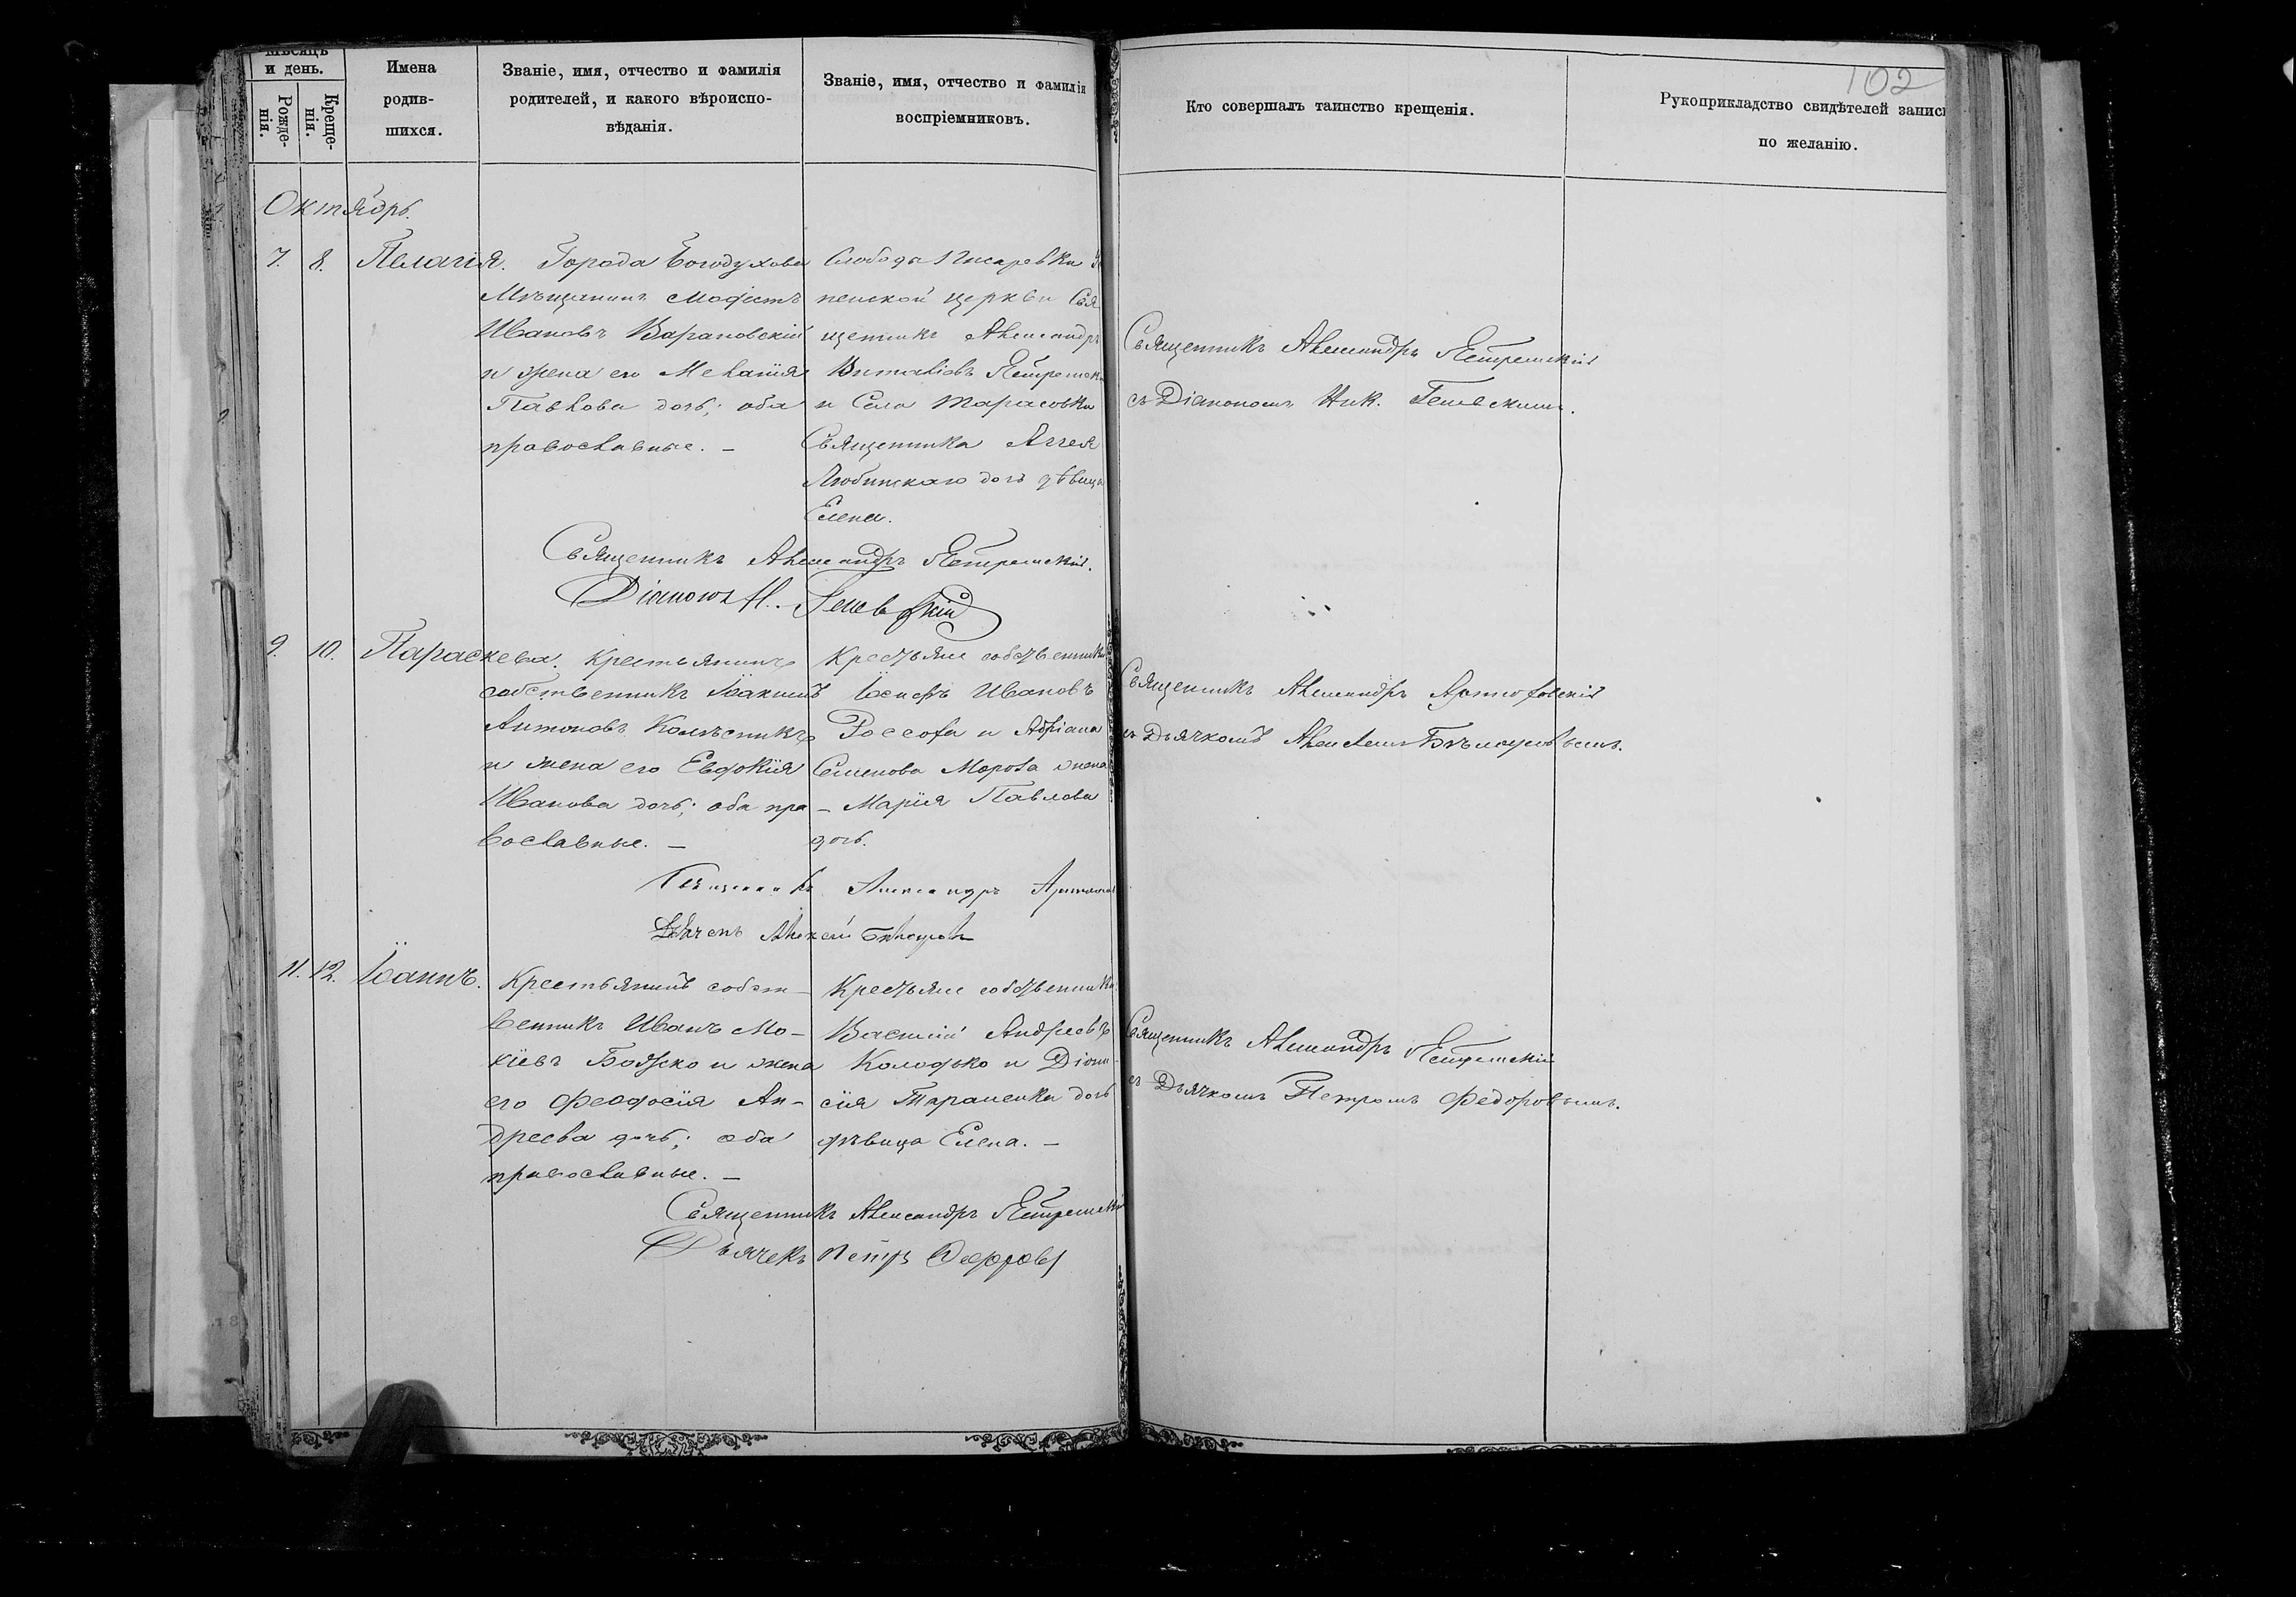 102
Мѣсяцъ
и день.
Рожде-
нія.
Креще-
нія.
Имена
родив-
шихся.
Званіе, имя, отчество и фамилія
родителей, и какого вѣроиспо-
вѣданія.
Званіе, имя, отчество и фамилія
воспріемниковъ.
Кто совершалъ таинство крещенія.
Рукоприкладство свидѣтелей записи
по желанію.
Октябрь.
7. 8. Пелагія.
Города Богодухова
Мѣщанинъ Модестъ
Ивановъ Барановскій
и жена его Меланія
Павлова дочь; оба
православные. —
Слободы Писаревки
пенской церкви Свя
щенникъ Александръ
Виталіевъ
и Села Тарасовки
Священника Аггея
Любицкаго дочь дѣвица
Елена.
Священникъ Александръ
съ Діакономъ Ник.
Священникъ Александръ
Діаконъ Н.
9. 10. Параскева.
Крестьянинъ
собственникъ Іоакимъ
Антоновъ Колѣсникъ
и жена его Евдокія
Иванова дочь; оба пра
вославные. —
Крестьяне собственники
Іосифъ Ивановъ
и Адріана
Семенова Мороза жена
— Марія Павлова
дочь.
Священникъ Александръ
съ Дьячкомъ Алексѣемъ
Священникъ Александръ
Дьячекъ Алексѣй
11. 12. Іоаннъ.
Крестьянинъ собст-
венникъ Иванъ Мо-
кіевъ Боярско и жена
его Феодосія Ан-
дреева дочь; оба
православные. —
Крестьяне собственники
Василій Андреевъ
Колодько и Діони-
сія Тараненка дочь
дѣвица Елена. —
Священникъ Александръ
съ Дьячкомъ Петромъ Федоровымъ.
Священникъ Александръ
Дьячекъ Петръ Федоровъ